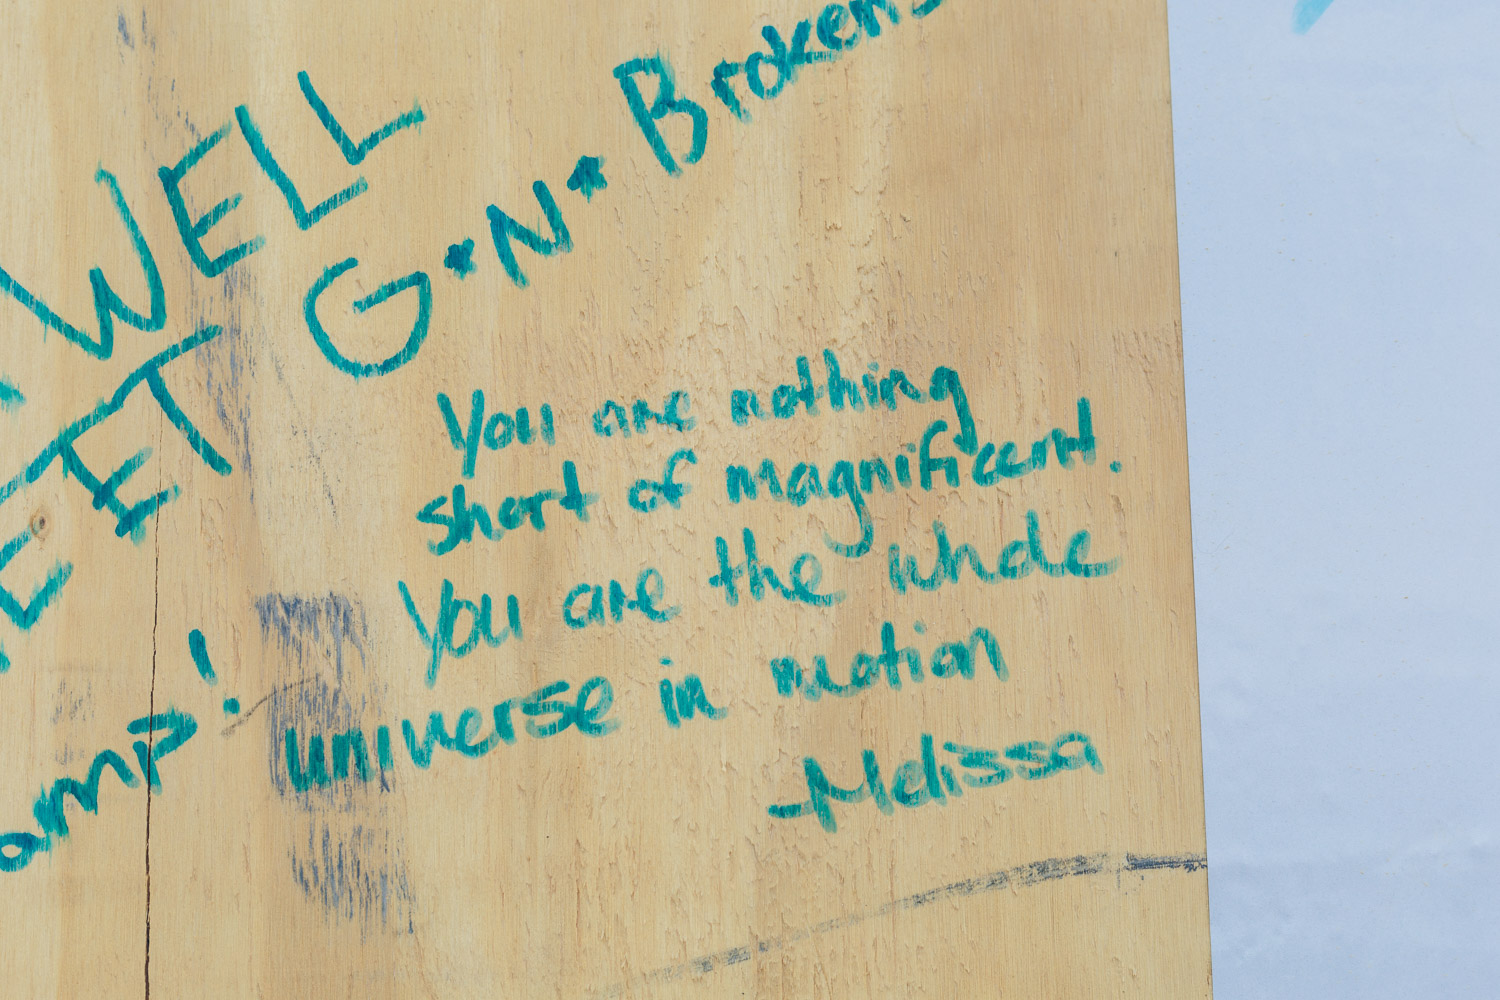 WELL
G·N·Broken
EET
amp!
You are nothing
short of magnificent.
You are the whole
universe in motion
-Melissa